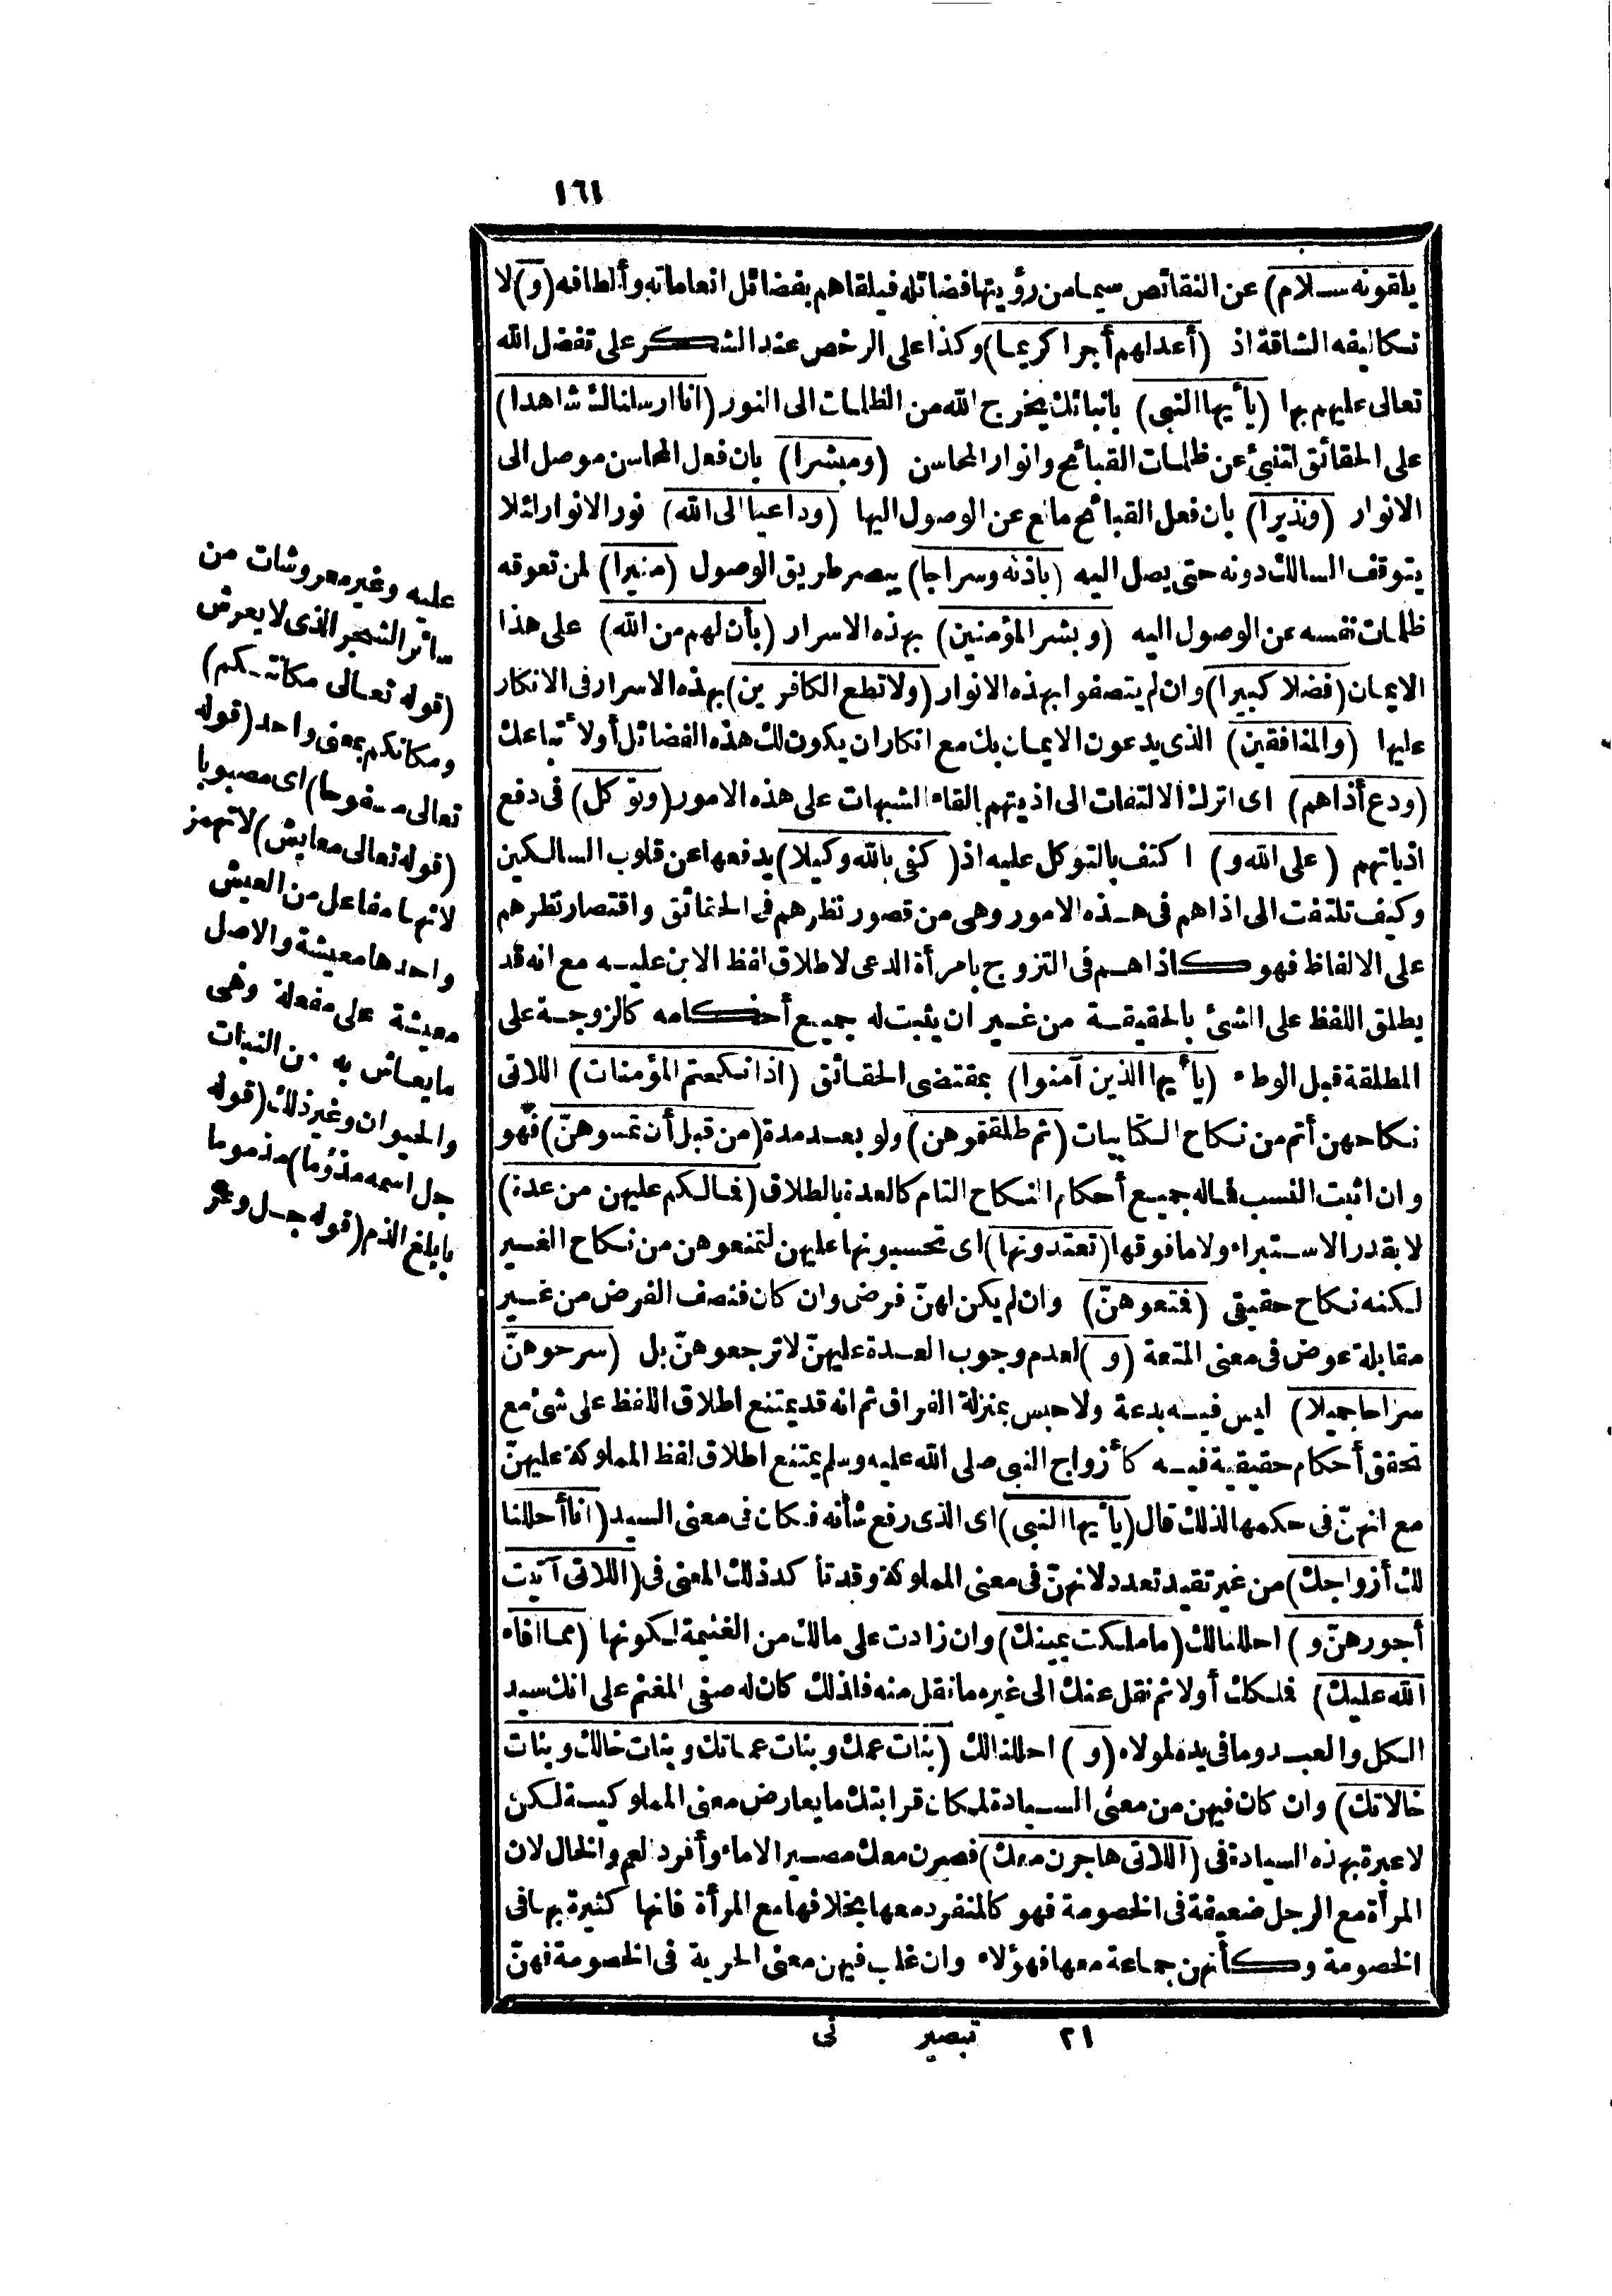 ١٦١
يلقونه سلام) عن النقائص سيما من رؤيتها فضائله فيلقاهم بفضائل انعاماته وألطافه (و) لا
تكاليفه الشاقة اذ (أعدلهم أجرا كريما) وكذا على الرخص عند الشكر على تفضل الله
تعالى عليهم بها (يأيها النبي) بانبائك يخرج الله من الظلمات الى النور (انا ارسلناك شاهدا)
على الحقائق لتنبئ عن ظلمات القبائح وانوار المحاسن (ومبشرا) بان فعل المحاسن موصل الى
الانوار (ونذيرا) بأن فعل القبائح مانع عن الوصول اليها (وداعيا الى الله) نور الانوار لئلا
يتوقف السالك دونه حتى يصل اليه (باذنه وسراجا) يبصر طريق الوصول (منيرا) لمن تعوقه
ظلمات نفسه عن الوصول اليه (وبشر المؤمنين) بهذه الاسرار (بأن لهم من الله) على هذا
الايمان (فضلا كبيرا) وان لم يتصفوا بهذه الانوار (ولا تطع الكافرين) بهذه الاسرار فى الانكار
عليها (والمنافقين) الذى يدعون الايمان بك مع انكار ان يكون لك هذه الفضائل أولا تباعك
(ودع أذاهم) اى اترك الالتفات الى اذيتهم بالقاء الشبهات على هذه الامور (وتوكل) فى دفع
اذياتهم (على الله و) اكتف بالتوكل عليه اذ (كفى بالله وكيلا) يدفعها عن قلوب السالكين
وكيف تلتفت الى اذاهم فى هذه الامور وهى من قصور نظرهم فى الحقائق واقتصار نظرهم
على الالفاظ فهو كاذاهم فى التزوج بامرأة الدعى لاطلاق لفظ الابن عليه مع انه قد
يطلق اللفظ على الشئ بالحقيقة من غير ان يثبت له جميع أحكامه كالزوجة على
المطلقة قبل الوطء (يأيها الذين آمنوا) بمقتضى الحقائق (اذا نكحتم المؤمنات) اللاتى
نكاحهن أتم من نكاح الكتابيات (ثم طلقتموهن) ولو بعد مدة (من قبل أن تمسوهنّ) فهو
وان اثبت النسب فماله جميع أحكام النكاح التام كالعدة بالطلاق (فمالكم عليهن من عدة)
لا بقدر الاستبراء ولا ما فوقها (تعتدونها) اى تحسبونها عليهن لتمنعوهن من نكاح الغير
لكنه نكاح حقيقى (فمتعوهنّ) وان لم يكن لهنّ فرض وان كان فنصف الفرض من غير
مقابلة عوض فى معنى المتعة (و) لعدم وجوب العدة عليهنّ لا ترجعوهنّ بل (سرحوهنّ
سراحا جميلا) ليس فيه بدعة ولا حبس بمنزلة الفراق ثم انه قد يمتنع اطلاق اللفظ على شئ مع
تحقق أحكام حقيقية فيه كأزواج النبى صلى الله عليه وسلم يمتنع اطلاق لفظ المملوكة عليهنّ
مع انهنّ فى حكمها لذلك قال (يأيها النبى) اى الذى رفع شأنه فكان فى معنى السيد (انا أحللنا
لك أزواجك) من غير تقيد تعدد لانهنّ فى معنى المملوكة وقد تأكد ذلك المعنى فى (اللاتى آتيت
أجورهنّ و) احللنا لك (ما ملكت يمينك) وان زادت على مالك من الغنيمة لكونها (مما افاء
الله عليك) فلكك أولا ثم نقل عنك الى غيره ما نقل منه فلذلك كان له صفى المغنم على انك سيد
الكل والعبد وما فى يده لمولاه (و) احللنا لك (بنات عمك وبنات عماتك وبنات خالك وبنات
خالاتك) وان كان فيهن من معنى السيادة لمكان قرابتك ما يعارض معنى المملوكية لكن
لا عبرة بهذه السيادة فى (اللاتى هاجرن معك) فصرن معك مصير الاماء وأفرد العم والخال لان
المرأة مع الرجل ضعيفة فى الخصومة فهو كالمنفرد معها بخلافها مع المرأة فانها كثيرة بها فى
الخصومة وكأنهن جماعة معها فهؤلاء وان غلب فيهن معنى الحرية فى الخصومة فهنّ
٢١ تبصير نى
عليه وغير معروشات من
سائر الشجر الذى لا يعرش
(قوله تعالى مكانتكم)
ومكانكم بمعنى واحد (قوله
تعالى مسفوحا) اى مصبوبا
(قوله تعالى معايش) لا تهمز
لانها مفاعل من العيش
واحدها معيشة والاصل
معيشة على مفعلة وهى
ما يعاش به من النبات
والحيوان وغير ذلك (قوله
جل اسمه مذؤما) مذموما
بابلغ الذم (قوله جل وعز